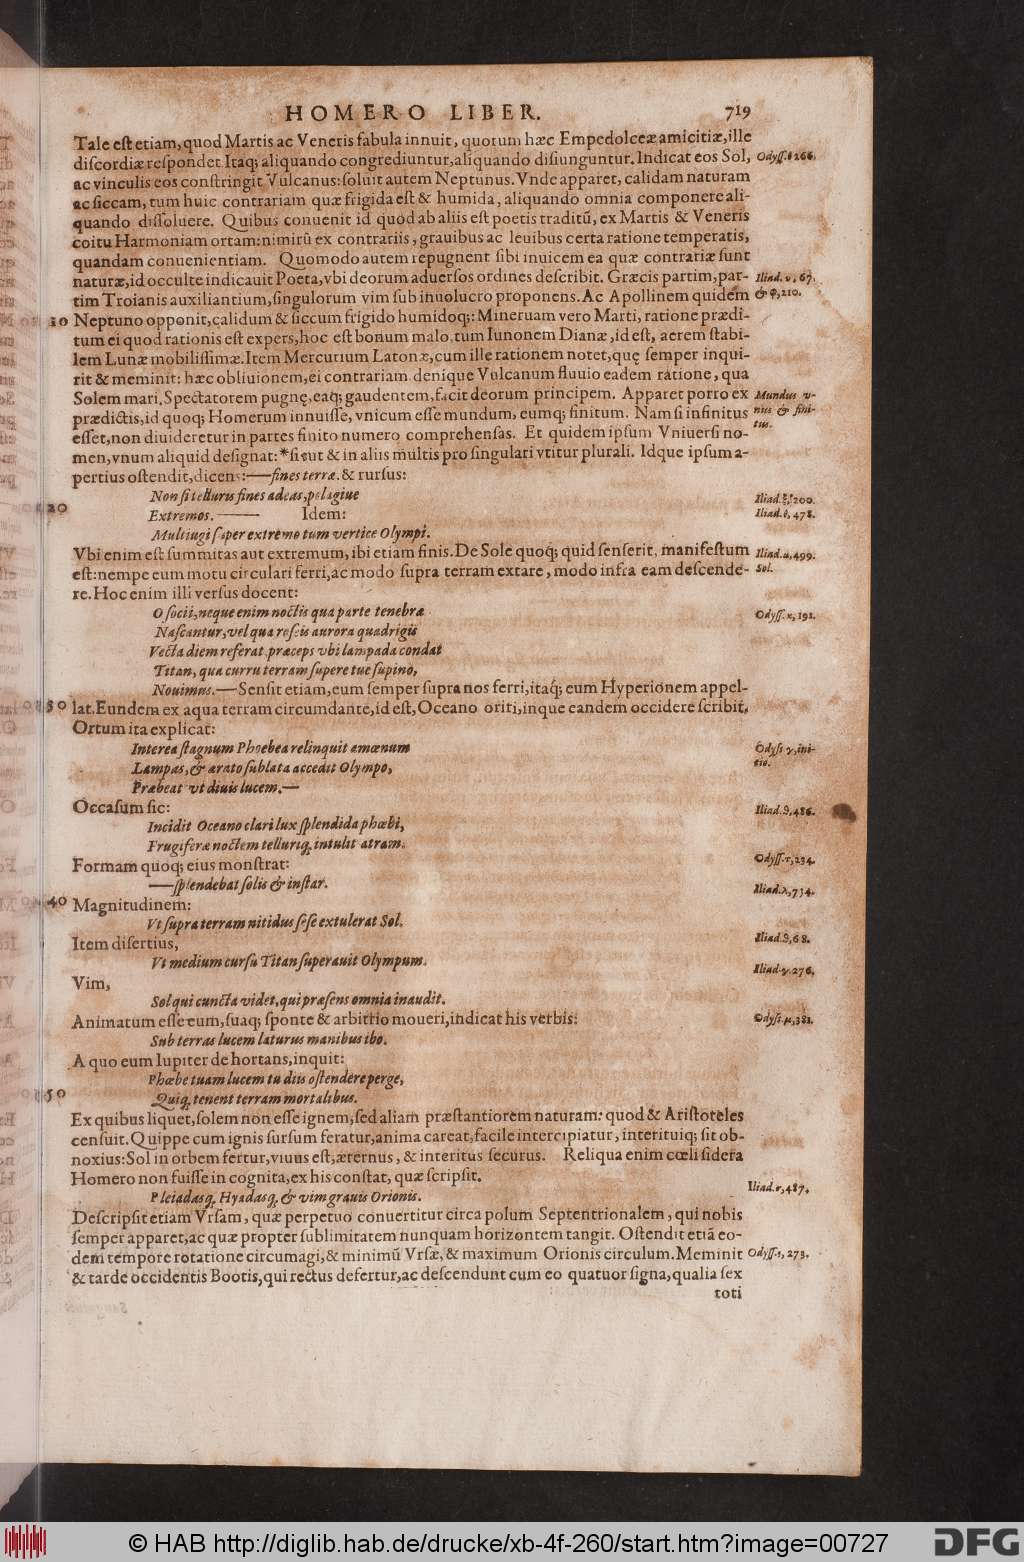 HOMERO LIBER. 719
Tale eſt etiam, quod Martis ac Veneris fabula innuit, quorum hæc Empedolceæ amicitiæ, ille
diſcordiæ reſpondet. Itaq; aliquando congrediuntur, aliquando diſiunguntur. Indicat eos Sol, Odyſſ. θ 266.
ac vinculis eos conſtringit Vulcanus: ſoluit autem Neptunus. Vnde apparet, calidam naturam
ac ſiccam, tum huic contrariam quæ frigida eſt & humida, aliquando omnia componere ali-
quando diſſoluere. Quibus conuenit id quod ab aliis eſt poetis traditū, ex Martis & Veneris
coitu Harmoniam ortam: nimirū ex contrariis, grauibus ac leuibus certa ratione temperatis,
quandam conuenientiam. Quomodo autem repugnent ſibi inuicem ea quæ contrariæ ſunt
naturæ, id occulte indicauit Poeta, vbi deorum aduerſos ordines deſcribit. Græcis partim, par- Iliad. υ, 67.
tim Troianis auxiliantium, ſingulorum vim ſub inuolucro proponens. Ac Apollinem quidem & φ, 210.
10 Neptuno opponit, calidum & ſiccum frigido humidoq;: Mineruam vero Marti, ratione prædi-
tum ei quod rationis eſt expers, hoc eſt bonum malo. tum Iunonem Dianæ, id eſt, aerem ſtabi-
lem Lunæ mobiliſſimæ. Item Mercurium Latonæ, cum ille rationem notet, quę ſemper inqui-
rit & meminit: hæc obliuionem, ei contrariam. denique Vulcanum fluuio eadem ratione, qua
Solem mari. Spectatorem pugnę, eaq; gaudentem, facit deorum principem. Apparet porro ex Mundus v-
prædictis, id quoq; Homerum innuiſſe, vnicum eſſe mundum, eumq; finitum. Nam ſi infinitus nus & fini-
eſſet, non diuideretur in partes finito numero comprehenſas. Et quidem ipſum Vniuerſi no- tus.
men, vnum aliquid deſignat: *ſicut & in aliis multis pro ſingulari vtitur plurali. Idque ipſum a-
pertius oſtendit, dicens: — fines terræ. & rurſus:
Non ſi telluris fines adeas, pelagiue Iliad. ξ, 200.
20 Extremos. —— Idem: Iliad. θ, 478.
Multiiugi ſuper extremo tum vertice Olympi.
Vbi enim eſt ſummitas aut extremum, ibi etiam finis. De Sole quoq; quid ſenſerit, manifeſtum Iliad. α, 499.
eſt: nempe eum motu circulari ferri, ac modo ſupra terram extare, modo infra eam deſcende- Sol.
re. Hoc enim illi verſus docent:
O ſocii, neque enim noctis qua parte tenebræ Odyſſ. κ, 191.
Naſcantur, vel qua roſeis aurora quadrigis
Vecta diem referat, præceps vbi lampada condat
Titan, qua curru terram ſupere tue ſupino,
Nouimus. — Senſit etiam, eum ſemper ſupra nos ferri, itaq; eum Hyperionem appel-
30 lat. Eundem ex aqua terram circumdante, id eſt, Oceano oriri, inque eandem occidere ſcribit.
Ortum ita explicat:
Interea ſtagnum Phoebea relinquit amœnum Odyſſ. γ, ini-
Lampas, & ærato ſublata accedit Olympo, tio.
Præbeat vt diuis lucem. —
Occaſum ſic: Iliad. θ, 486.
Incidit Oceano clari lux ſplendida phœbi,
Frugiferæ noctem telluriq; intulit atram.
Formam quoq; eius monſtrat: Odyſſ. τ, 234.
— ſplendebat ſolis & inſtar.
40 Magnitudinem: Iliad. λ, 734.
Vt ſupra terram nitidus ſeſe extulerat Sol.
Item diſertius, Iliad. θ, 68.
Vt medium curſu Titan ſuperauit Olympum.
Vim, Iliad. γ. 276.
Sol qui cuncta videt, qui præſens omnia inaudit.
Animatum eſſe eum, ſuaq; ſponte & arbitrio moueri, indicat his verbis: Odyſſ. μ, 382.
Sub terras lucem laturus manibus ibo.
A quo eum Iupiter dehortans, inquit:
Phœbe tuam lucem tu diis oſtendere perge,
50 Quiq; tenent terram mortalibus.
Ex quibus liquet, ſolem non eſſe ignem, ſed aliam præſtantiorem naturam: quod & Ariſtoteles
cenſuit. Quippe cum ignis ſurſum feratur, anima careat, facile intercipiatur, interituiq; ſit ob-
noxius: Sol in orbem fertur, viuus eſt, æternus, & interitus ſecurus. Reliqua enim cœli ſidera
Homero non fuiſſe incognita, ex his conſtat, quæ ſcripſit.
Pleiadasq; Hyadasq; & vim grauis Orionis. Iliad. σ, 487.
Deſcripſit etiam Vrſam, quæ perpetuo conuertitur circa polum Septentrionalem, qui nobis
ſemper apparet, ac quæ propter ſublimitatem nunquam horizontem tangit. Oſtendit etiā eo-
dem tempore rotatione circumagi, & minimū Vrſæ, & maximum Orionis circulum. Meminit Odyſſ. ε, 273.
& tarde occidentis Bootis, qui rectus defertur, ac deſcendunt cum eo quatuor ſigna, qualia ſex
toti
© HAB http://diglib.hab.de/drucke/xb-4f-260/start.htm?image=00727 DFG